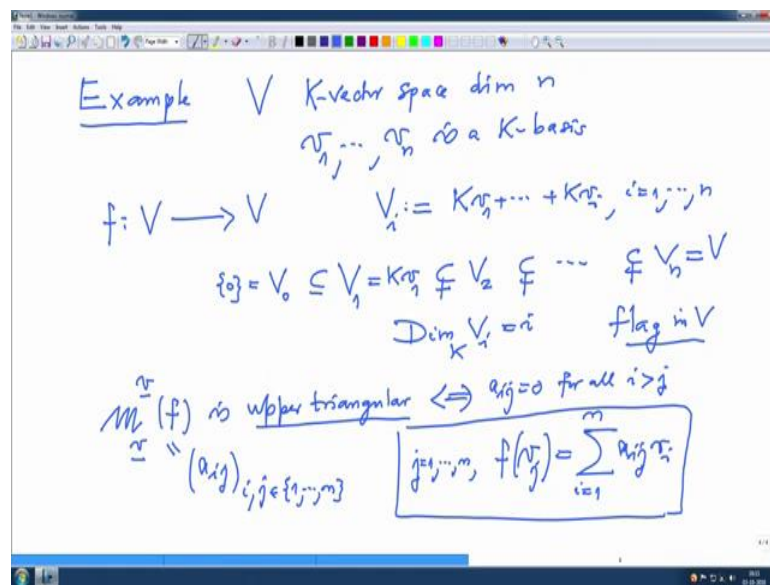 Note1 - Windows Journal
File Edit View Insert Actions Tools Help
Page Width
Example V K-vector space dim n
v₁, ..., vₙ is a K-basis
f: V → V Vᵢ := Kv₁ + ... + Kvᵢ, i=1, ..., n
{0} = V₀ ⊆ V₁ = Kv₁ ⊊ V₂ ⊊ ... ⊊ Vₙ = V
Dim_K Vᵢ = i flag in V
M^v_v (f) is upper triangular ⟺ aᵢⱼ = 0 for all i > j
= (aᵢⱼ)_{i,j ∈ {1, ..., n}} j=1, ..., n, f(vⱼ) = ∑_{i=1}^{n} aᵢⱼ vᵢ